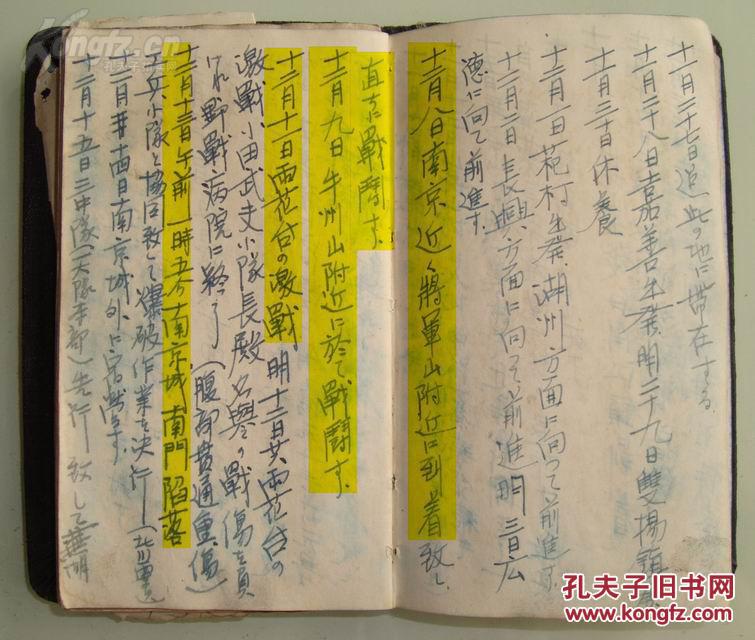 十一月二十七日迄此の地に滞在する
十一月二十八日嘉善出発明二十九日雙楊鎮着
十一月三十日休養
十二月一日苑村出発湖州方面に向って前進す
十二月二日長興方面に向って前進明三日広
徳に向て前進す
十二月八日南京近く將軍山附近に到着致し
直ちに戰鬪す
十二月九日牛州山附近に於て戰鬪す
十二月十一日雨花台の激戰明十二日共雨花台の
激戰小田武支小隊長殿名譽の戰傷を負
はれ野戰病院に終了(腹部貫通重傷)
十二月十三日午前一時五分南京城南門陷落
工兵小隊と協臣致して爆破作業を決行
十二月十四日南京城外に宿營す
十二月十五日三中隊(大隊本部)先行致して蕪湖
孔夫子旧书网
www.kongfz.com
Kongfz.com